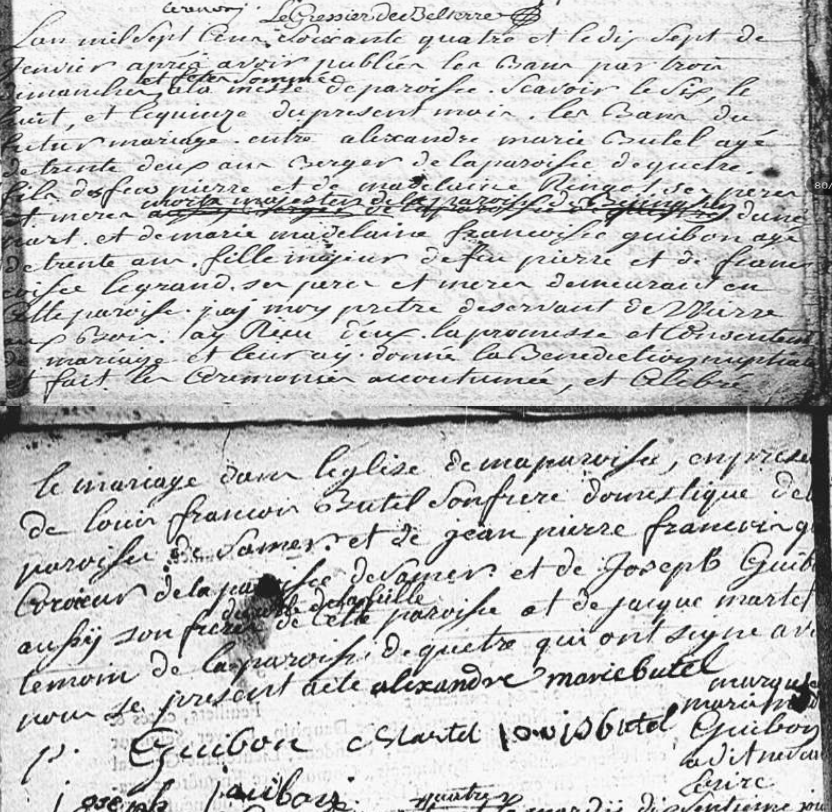 Le Greffier de Belterre
Lan mil sept Cens Soixante quatre et le dix sept de
Jenvier apriés avoir publier les Bans par trois
et feter Sommée
dimanches a la messe de paroisse. Scavoir le Six, le
huit, et le quinze du present mois. les Bans du
futur mariage. entre alexandre marie Butel agé
de trente deux ans Berger de la paroisse de questre.
fils de feu pierre et de madelaine Ringo! ses peres
et meres dune
part. et de marie madelaine francoise guibon agé
de trente ans. fille majeur de feu pierre et de fran
coisse legrand. ses pere et meres demeurant en
Cette paroisse. jai moy pretre deservant de Wierre
aux Bois. ay Recu deux la promesse et Consentem
de mariage et leur ay donné la Benediction nuptial
et fait les Ceremonies accoutumée, et Celebré
le mariage dans leglise de ma paroisse, en prese
de louis francois Butel Son frere domestique de l
paroisse de Samer. et de jean pierre francois
de la paroisse de Samer. et de Joseph Guib
de la fille
aussy son frere de Cette paroisse et de jacque martel
temoin de la paroisse de quetre qui ont signe av
nous se present acte alexandre marie butel
marque
marie mad
p. Guibon C Martel louis butel Guibon
Ecrire
joseph guibon